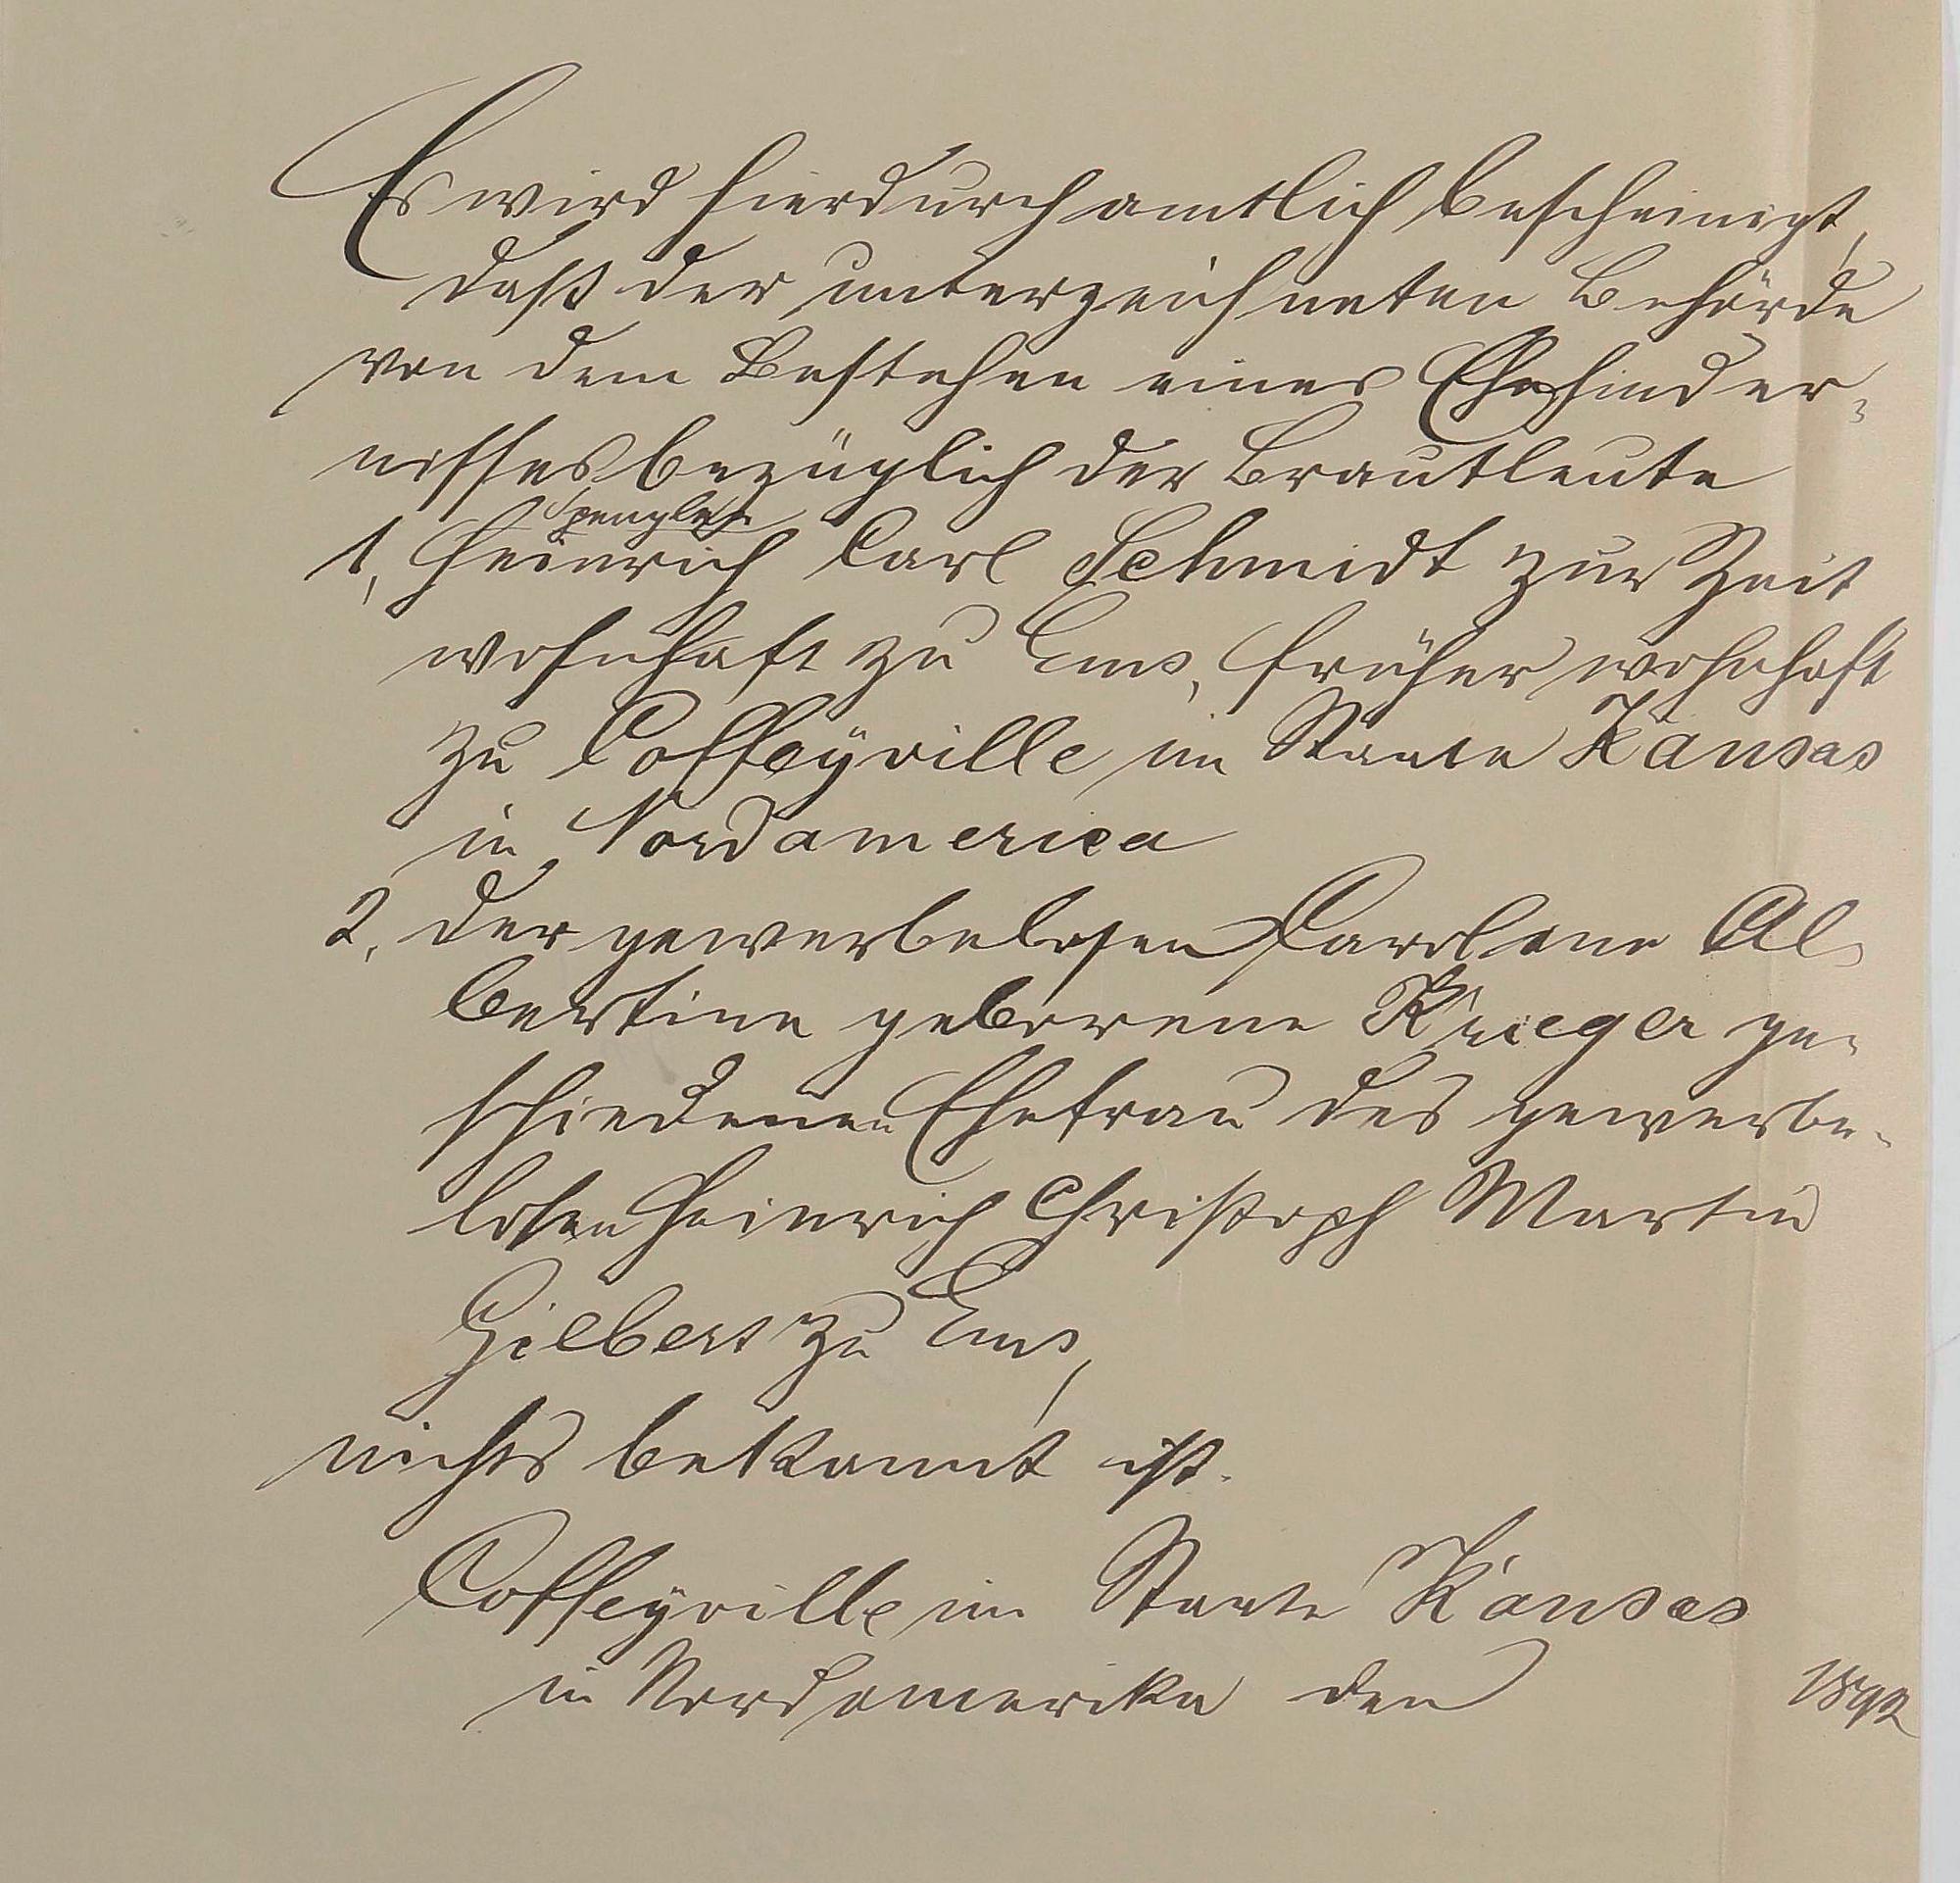 Es wird hierdurch amtlich bescheinigt,
daß der unterzeichneten Behörde
von dem Bestehen eines Ehehinder-
nisses bezüglich der Brautleute
Spengler
1, Heinrich Carl Schmidt zur Zeit
wohnhaft zu Ems, früher wohnhaft
zu Coffeyville im Staate Kansas
in Nordamerica
2, der gewerbelosen Caroline Al-
bertine geborene Krieger ge-
schiedenen Ehefrau des gewerbe-
losen Heinrich Christoph Martin
Gilbert zu Ems,
nichts bekannt ist.
Coffeyville im Staate Kansas
in Nordamerika den 1892